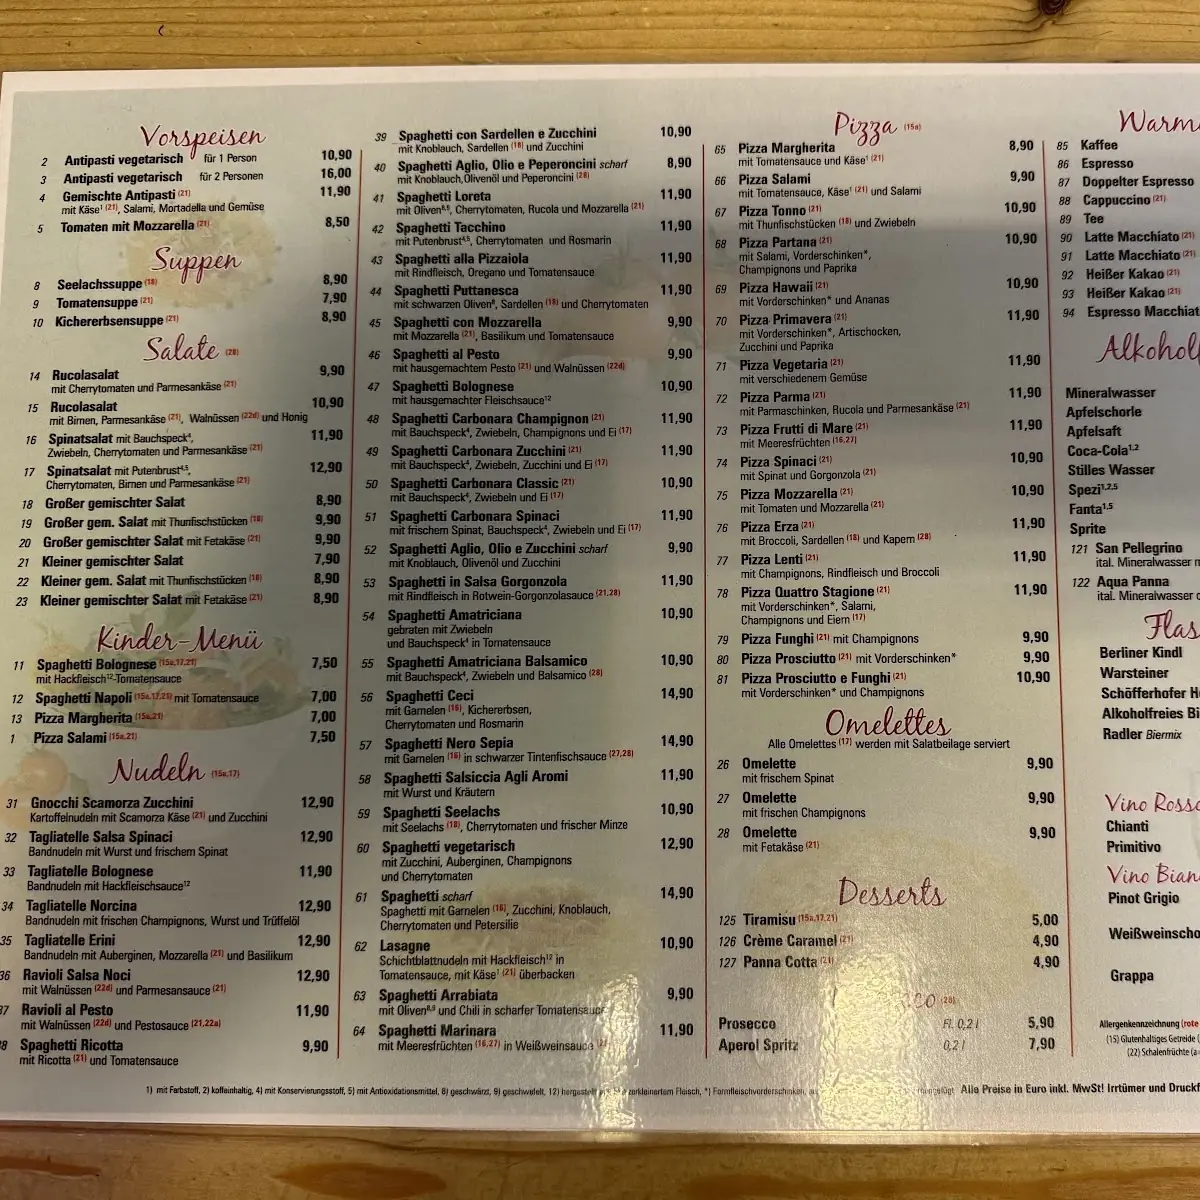 Vorspeisen
2 Antipasti vegetarisch für 1 Person 10,90
3 Antipasti vegetarisch für 2 Personen 16,00
4 Gemischte Antipasti (21) 11,90
mit Käse¹ (21), Salami, Mortadella und Gemüse
5 Tomaten mit Mozzarella (21) 8,50
Suppen
8 Seelachssuppe (18) 8,90
9 Tomatensuppe (21) 7,90
10 Kichererbsensuppe (21) 8,90
Salate (28)
14 Rucolasalat 9,90
mit Cherrytomaten und Parmesankäse (21)
15 Rucolasalat 10,90
mit Birnen, Parmesankäse (21), Walnüssen (22d) und Honig
16 Spinatsalat mit Bauchspeck⁴, 11,90
Zwiebeln, Cherrytomaten und Parmesankäse (21)
17 Spinatsalat mit Putenbrust⁴,⁵, 12,90
Cherrytomaten, Birnen und Parmesankäse (21)
18 Großer gemischter Salat 8,90
19 Großer gem. Salat mit Thunfischstücken (18) 9,90
20 Großer gemischter Salat mit Fetakäse (21) 9,90
21 Kleiner gemischter Salat 7,90
22 Kleiner gem. Salat mit Thunfischstücken (18) 8,90
23 Kleiner gemischter Salat mit Fetakäse (21) 8,90
Kinder-Menü
11 Spaghetti Bolognese (15a,17,21) 7,50
mit Hackfleisch¹²-Tomatensauce
12 Spaghetti Napoli (15a,17,21) mit Tomatensauce 7,00
13 Pizza Margherita (15a,21) 7,00
1 Pizza Salami (15a,21) 7,50
Nudeln (15a,17)
31 Gnocchi Scamorza Zucchini 12,90
Kartoffelnudeln mit Scamorza Käse (21) und Zucchini
32 Tagliatelle Salsa Spinaci 12,90
Bandnudeln mit Wurst und frischem Spinat
33 Tagliatelle Bolognese 11,90
Bandnudeln mit Hackfleischsauce¹²
34 Tagliatelle Norcina 12,90
Bandnudeln mit frischen Champignons, Wurst und Trüffelöl
35 Tagliatelle Erini 12,90
Bandnudeln mit Auberginen, Mozzarella (21) und Basilikum
36 Ravioli Salsa Noci 12,90
mit Walnüssen (22d) und Parmesansauce (21)
37 Ravioli al Pesto 11,90
mit Walnüssen (22d) und Pestosauce (21,22a)
38 Spaghetti Ricotta 9,90
mit Ricotta (21) und Tomatensauce
39 Spaghetti con Sardellen e Zucchini 10,90
mit Knoblauch, Sardellen (18) und Zucchini
40 Spaghetti Aglio, Olio e Peperoncini scharf 8,90
mit Knoblauch,Olivenöl und Peperoncini (28)
41 Spaghetti Loreta 11,90
mit Oliven⁸,⁹, Cherrytomaten, Rucola und Mozzarella (21)
42 Spaghetti Tacchino 11,90
mit Putenbrust⁴,⁵, Cherrytomaten und Rosmarin
43 Spaghetti alla Pizzaiola 11,90
mit Rindfleisch, Oregano und Tomatensauce
44 Spaghetti Puttanesca 11,90
mit schwarzen Oliven⁸, Sardellen (18) und Cherrytomaten
45 Spaghetti con Mozzarella 9,90
mit Mozzarella (21), Basilikum und Tomatensauce
46 Spaghetti al Pesto 9,90
mit hausgemachtem Pesto (21) und Walnüssen (22d)
47 Spaghetti Bolognese 10,90
mit hausgemachter Fleischsauce¹²
48 Spaghetti Carbonara Champignon (21) 11,90
mit Bauchspeck⁴, Zwiebeln, Champignons und Ei (17)
49 Spaghetti Carbonara Zucchini (21) 11,90
mit Bauchspeck⁴, Zwiebeln, Zucchini und Ei (17)
50 Spaghetti Carbonara Classic (21) 10,90
mit Bauchspeck⁴, Zwiebeln und Ei (17)
51 Spaghetti Carbonara Spinaci 11,90
mit frischem Spinat, Bauchspeck⁴, Zwiebeln und Ei (17)
52 Spaghetti Aglio, Olio e Zucchini scharf 9,90
mit Knoblauch, Olivenöl und Zucchini
53 Spaghetti in Salsa Gorgonzola 11,90
mit Rindfleisch in Rotwein-Gorgonzolasauce (21,28)
54 Spaghetti Amatriciana 10,90
gebraten mit Zwiebeln
und Bauchspeck⁴ in Tomatensauce
55 Spaghetti Amatriciana Balsamico 10,90
mit Bauchspeck⁴, Zwiebeln und Balsamico (28)
56 Spaghetti Ceci 14,90
mit Garnelen (16), Kichererbsen,
Cherrytomaten und Rosmarin
57 Spaghetti Nero Sepia 14,90
mit Garnelen (16) in schwarzer Tintenfischsauce (27,28)
58 Spaghetti Salsiccia Agli Aromi 11,90
mit Wurst und Kräutern
59 Spaghetti Seelachs 10,90
mit Seelachs (18), Cherrytomaten und frischer Minze
60 Spaghetti vegetarisch 12,90
mit Zucchini, Auberginen, Champignons
und Cherrytomaten
61 Spaghetti scharf 14,90
Spaghetti mit Garnelen (16), Zucchini, Knoblauch,
Cherrytomaten und Petersilie
62 Lasagne 10,90
Schichtblattnudeln mit Hackfleisch¹² in
Tomatensauce, mit Käse¹ (21) überbacken
63 Spaghetti Arrabiata 9,90
mit Oliven⁸,⁹ und Chili in scharfer Tomatensauce
64 Spaghetti Marinara 11,90
mit Meeresfrüchten (16,27) in Weißweinsauce
Pizza (15a)
65 Pizza Margherita 8,90
mit Tomatensauce und Käse¹ (21)
66 Pizza Salami 9,90
mit Tomatensauce, Käse¹ (21) und Salami
67 Pizza Tonno (21) 10,90
mit Thunfischstücken (18) und Zwiebeln
68 Pizza Partana (21) 10,90
mit Salami, Vorderschinken*,
Champignons und Paprika
69 Pizza Hawaii (21) 10,90
mit Vorderschinken* und Ananas
70 Pizza Primavera (21) 11,90
mit Vorderschinken*, Artischocken,
Zucchini und Paprika
71 Pizza Vegetaria (21) 11,90
mit verschiedenem Gemüse
72 Pizza Parma (21) 11,90
mit Parmaschinken, Rucola und Parmesankäse (21)
73 Pizza Frutti di Mare (21) 11,90
mit Meeresfrüchten (16,27)
74 Pizza Spinaci (21) 10,90
mit Spinat und Gorgonzola (21)
75 Pizza Mozzarella (21) 10,90
mit Tomaten und Mozzarella (21)
76 Pizza Erza (21) 11,90
mit Broccoli, Sardellen (18) und Kapern (28)
77 Pizza Lenti (21) 11,90
mit Champignons, Rindfleisch und Broccoli
78 Pizza Quattro Stagione (21) 11,90
mit Vorderschinken*, Salami,
Champignons und Eiern (17)
79 Pizza Funghi (21) mit Champignons 9,90
80 Pizza Prosciutto (21) mit Vorderschinken* 9,90
81 Pizza Prosciutto e Funghi (21) 10,90
mit Vorderschinken* und Champignons
Omelettes
Alle Omelettes (17) werden mit Salatbeilage serviert
26 Omelette 9,90
mit frischem Spinat
27 Omelette 9,90
mit frischen Champignons
28 Omelette 9,90
mit Fetakäse (21)
Desserts
125 Tiramisu (15a,17,21) 5,00
126 Crème Caramel (21) 4,90
127 Panna Cotta (21) 4,90
co (28)
Prosecco Fl. 0,2 l 5,90
Aperol Spritz 0,2 l 7,90
Warm
85 Kaffee
86 Espresso
87 Doppelter Espresso
88 Cappuccino (21)
89 Tee
90 Latte Macchiato (21)
91 Latte Macchiato (21)
92 Heißer Kakao (21)
93 Heißer Kakao (21)
94 Espresso Macchiat
Alkohol
Mineralwasser
Apfelschorle
Apfelsaft
Coca-Cola¹,²
Stilles Wasser
Spezi¹,²,⁵
Fanta¹,⁵
Sprite
121 San Pellegrino
ital. Mineralwasser m
122 Aqua Panna
ital. Mineralwasser
Flas
Berliner Kindl
Warsteiner
Schöfferhofer H
Alkoholfreies Bi
Radler Biermix
Vino Rosso
Chianti
Primitivo
Vino Bian
Pinot Grigio
Weißweinscho
Grappa
Allergenkennzeichnung (rote
(15) Glutenhaltiges Getreide (
(22) Schalenfrüchte (a
1) mit Farbstoff, 2) koffeinhaltig, 4) mit Konservierungsstoff, 5) mit Antioxidationsmittel, 8) geschwärzt, 9) geschwefelt, 12) hergestellt zerkleinertem Fleisch, *) Formfleischvorderschinken, Alle Preise in Euro inkl. MwSt! Irrtümer und Druckf